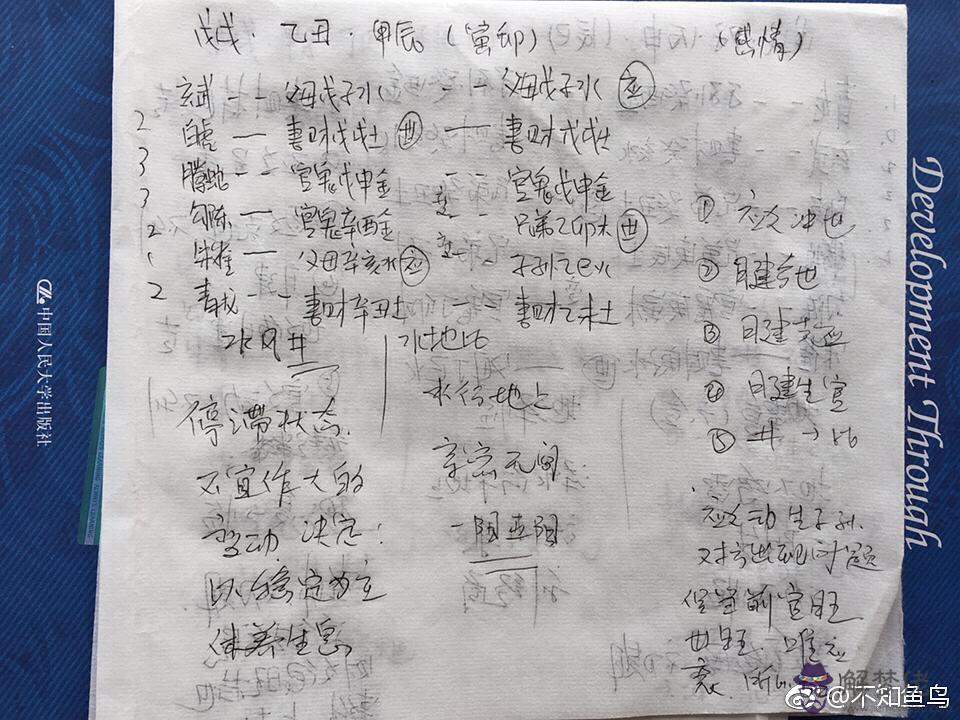 戊戌．乙丑．甲辰（寅卯）（感情）
玄武 -- 父母戊子水 -- 父母戊子水 应
2 白虎 — 妻财戊戌土 世 — 妻财戊戌土
3 腾蛇 -- 官鬼戊申金 -- 官鬼戊申金
3 勾陈 — 官鬼辛酉金 -- 兄弟乙卯木 世
2 朱雀 — 父母辛亥水 应 -- 子孙乙巳火
2 青龙 -- 妻财辛丑土 妻财乙未土
水风井 水地比
停滞状态.
不宜作大的
变动 决定.
以稳定为主
休养生息
水行地上
亲密无间
① 应爻冲世
② 日建合世
③ 日建克应
④ 日建生官
⑤ 井→比
应爻动生子孙.
对方出现问题
但当前官旺
世旺. 唯应
衰.
中国人民大学出版社
Development Through
@不知鱼鸟